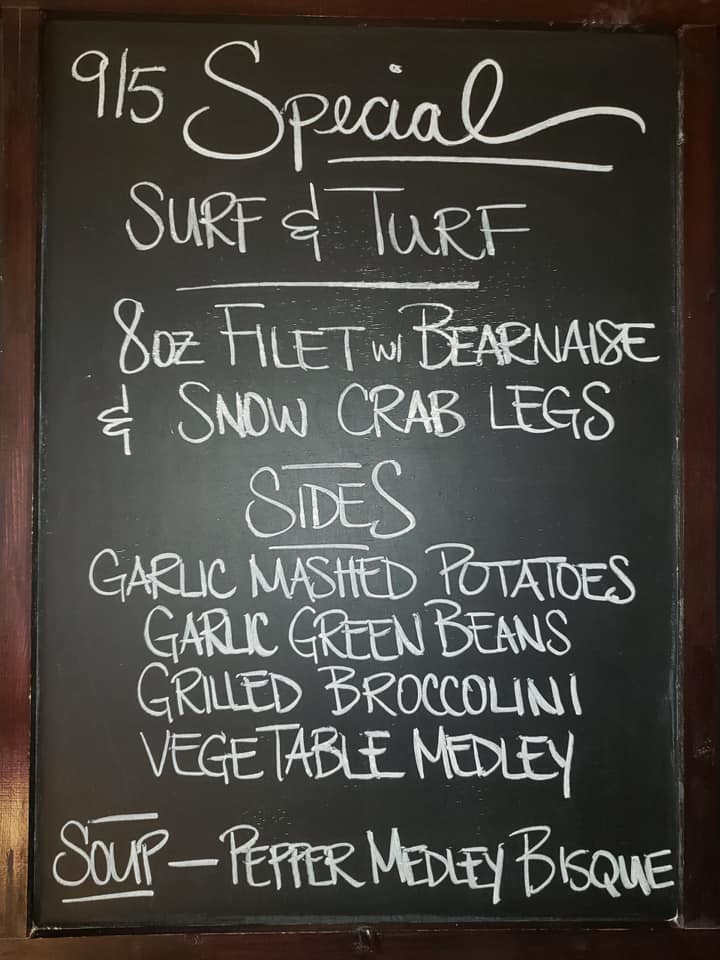 9/5 Special
SURF & TURF
8OZ FILET w/ BEARNAISE
& SNOW CRAB LEGS
SIDES
GARLIC MASHED POTATOES
GARLIC GREEN BEANS
GRILLED BROCCOLINI
VEGETABLE MEDLEY
SOUP — PEPPER MEDLEY BISQUE